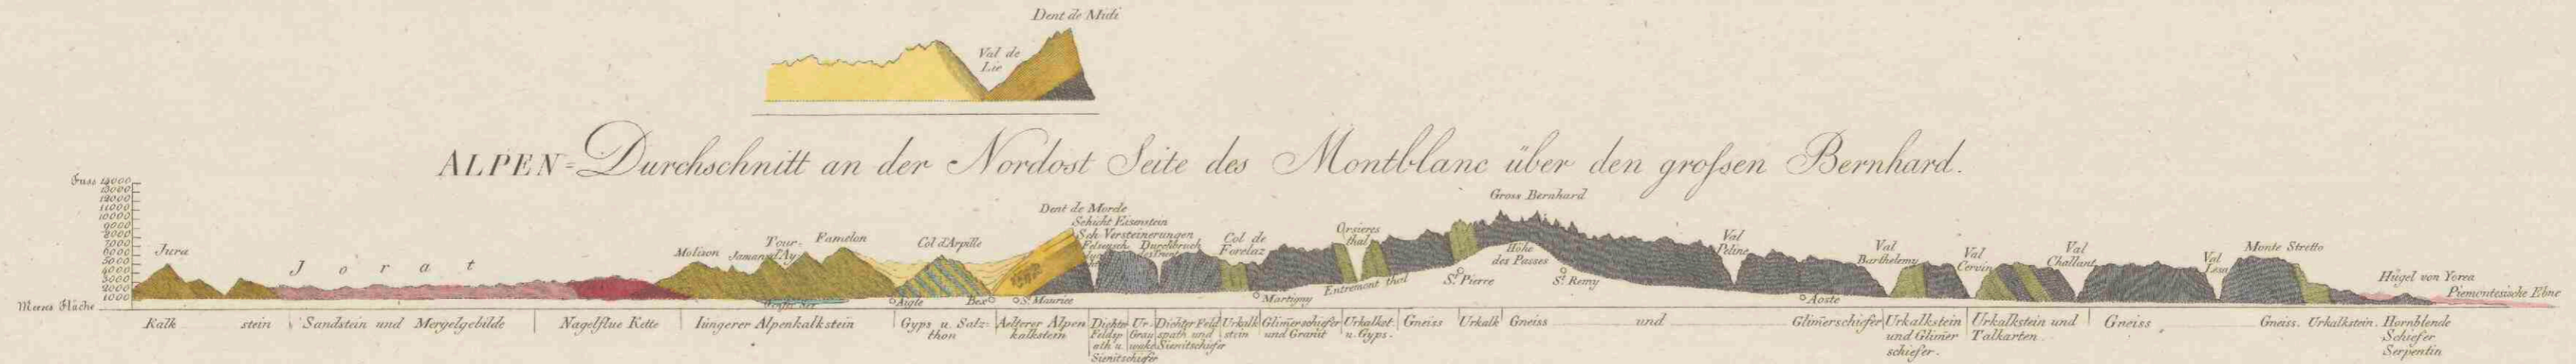 Dent de Midi
Val de
Lie
ALPEN=Durchschnitt an der Nordost Seite des Montblanc über den groſsen Bernhard.
Fuss 14000
13000
12000
11000
10000
9000
8000
7000
6000
5000
4000
3000
2000
1000
Meeres Fläche
Jura
Jorat
Moléson
Jaman
Tour
d'Ay
Famelon
Col d'Arpille
Dent de Morde
Schicht Eisenstein
Sch. Versteinerungen
Durchbruch
Col de
Forelaz
Orsieres
thal
Gross Bernhard
Höhe
des Passes
Val
Peline
Val
Barthelemy
Val
Cervin
Val
Challant
Val
Lesa
Monte Stretto
Hügel von Yorea
Piemontesische Ebne
Genfer See
Aigle
Bex
St. Maurice
Martigny
Entremont thal
St. Pierre
St. Remy
Aoste
Kalk stein
Sandstein und Mergelgebilde
Nagelflue Kette
Iüngerer Alpenkalkstein
Gyps u. Salz-
thon
Aelterer Alpen
kalkstein
Dichter
Feldsp
ath u.
Sienitschiefer
Ur-
Grau
wake
Dichter Feld
spath und
Sienitschiefer
Urkalk
stein
Glim̄erschiefer
und Granit
Urkalkst.
u. Gyps.
Gneiss
Urkalk
Gneiss und Glim̄erschiefer
Urkalkstein
und Glim̄er
schiefer.
Urkalkstein und
Talkarten.
Gneiss
Gneiss. Urkalkstein. Hornblende
Schiefer
Serpentin